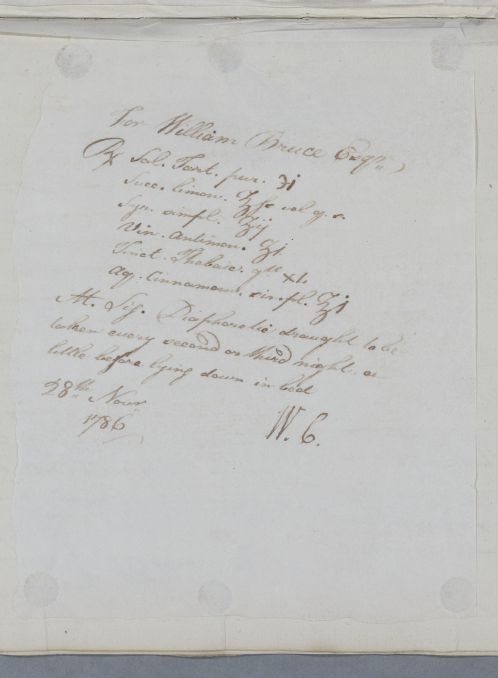 For William Bruce Esqr.
℞ Sal. Tart. pur. ℈j
Succ. limon. ℥ſs vel q. s.
Syr. simpl. ʒij
Vin. antimon. ʒj
Tinct. Thebaic. gtt XL
Aq. Cinnamom. simpl. ℥j
M. Sig. Diaphoretic draught to be
taken every second or third night, a
little before lying down in bed
28th Novr
1786
W. C.